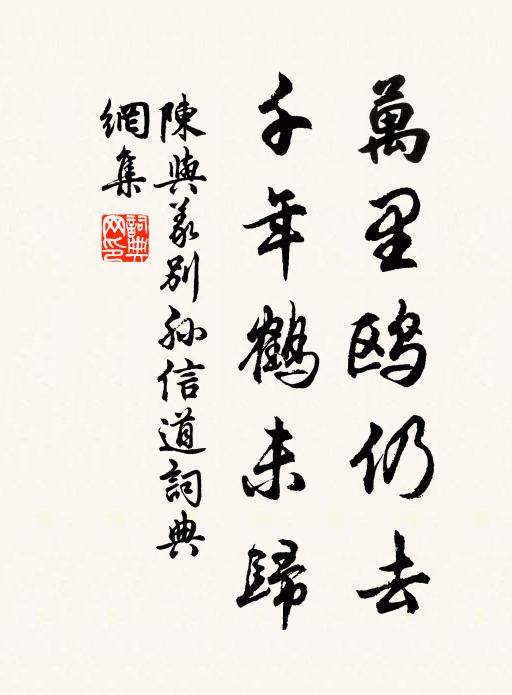 萬里鷗仍去
千年鶴未歸
陳與義別孫信道詞典
網集
詞典網印